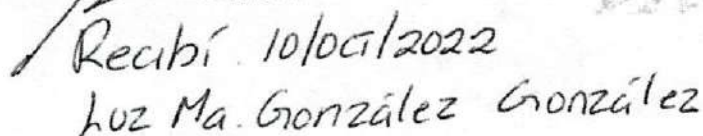 Recibí 10/oct/2022
Luz Ma. González González